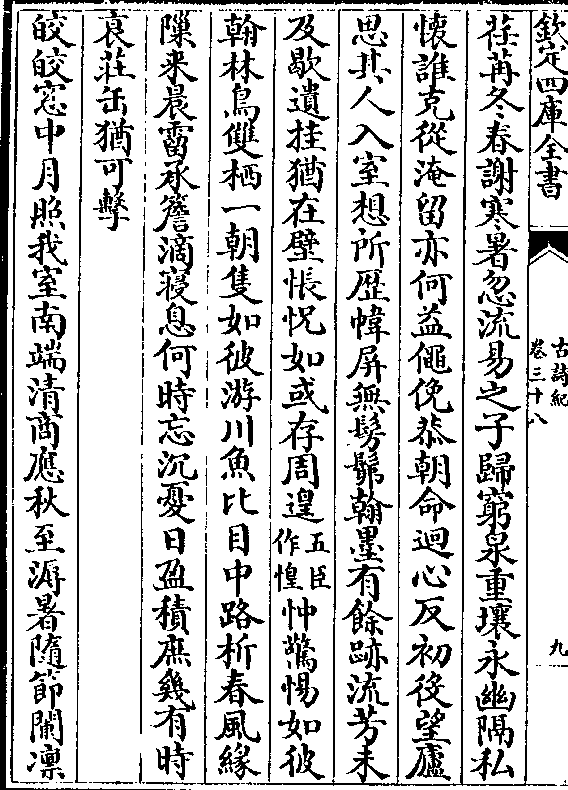 欽定四庫全書
古詩紀
卷三十八
九
荏苒冬春謝寒暑忽流易之子歸窮泉重壤永幽隔私
懷誰克從淹留亦何益僶俛恭朝命迴心反初役望廬
思其人入室想所歷幃屏無髣髴翰墨有餘跡流芳未
及歇遺挂猶在壁悵怳如或存周遑五臣作惶忡驚惕如彼
翰林鳥雙栖一朝隻如彼游川魚比目中路析春風緣
隟来晨霤承簷滴寢息何時忘沉憂日盈積庶幾有時
衰莊缶猶可擊
皎皎窓中月照我室南端清商應秋至溽暑隨節闌凛